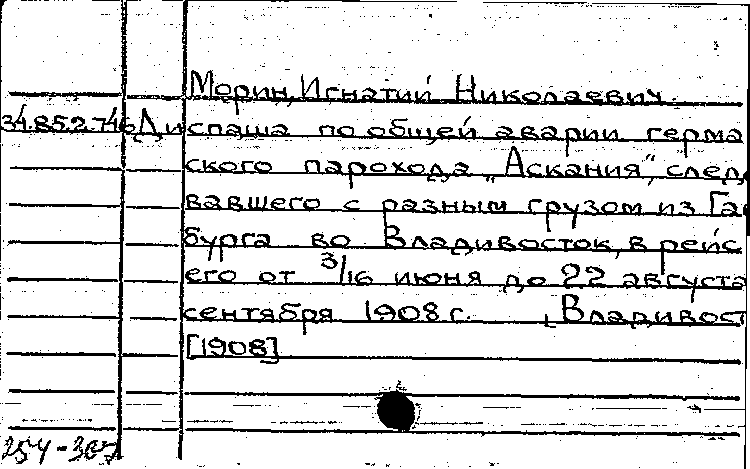 Морин, Игнатий Николаевич.
34.85.2.746 Диспаша по общей аварии герма
ского парохода „Аскания", след
вавшего с разным грузом из Га
бурга во Владивосток, в рейс
его от 3/16 июня до 22 августа
сентября 1908 г. , Владивост
[1908]
254-367